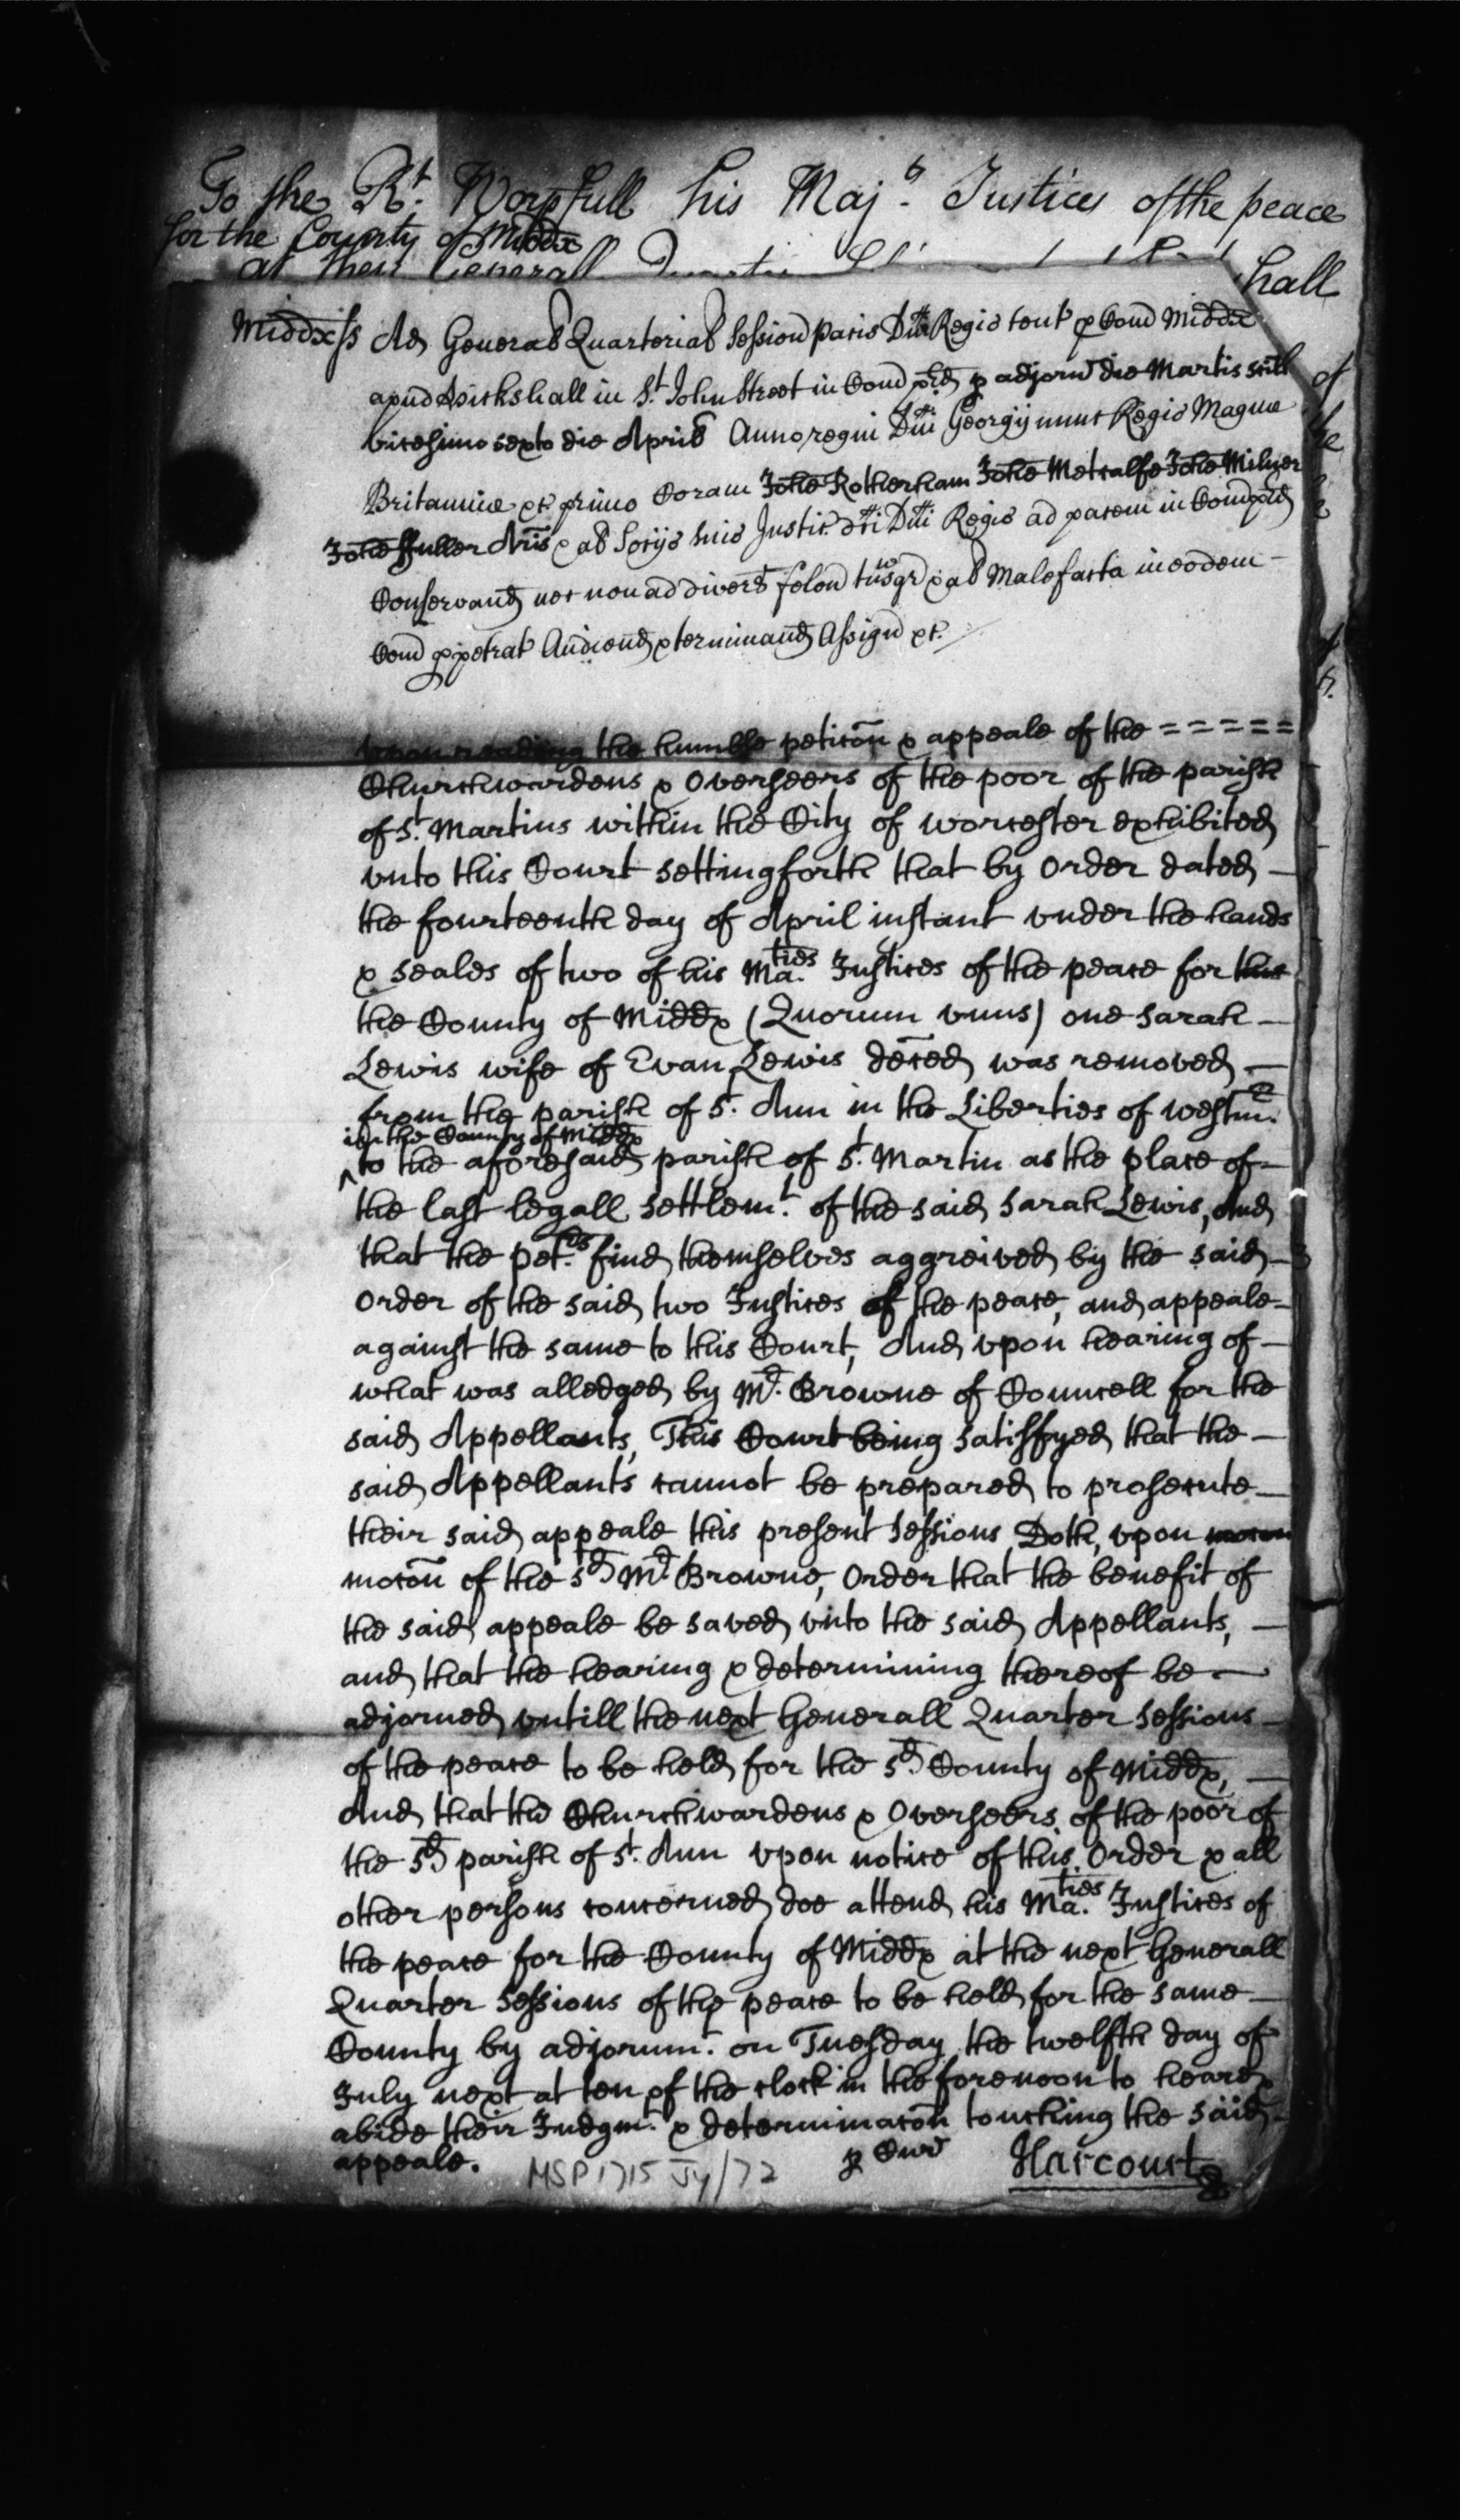 To the Rt. Worpfull his Maj.s Justices of the peace
for the County of Middx
at their Generall
hall
Middx ss Ad General Quarterial Session Pacis Dni Regis tent p Com Middx
apud Hickshall in St. John Street in Com pred p adjorn die Martis scilt
vicesimo sexto die April Anno regni Dni Georgij nunc Regis Magne
Britannie &c primo Coram Johe Rotherham Johe Metcalfe Johe Milner
Johe ffuller Aris & al Socijs suis Justic dci Dni Regis ad pacem in Com pred
Conservand nec non ad divers felon tnsgr & al Malefacta in eodem
Com ppetrat Audiend & terminand Assign &c.
Upon reading the humble peticon & appeale of the = = = = =
Churchwardens & Overseers of the poor of the parish
of St. Martins within the City of Worcester exhibited
vnto this Court setting forth that by Order dated
the fourteenth day of April instant vnder the hands
& seales of two of his Ma.ties Justices of the peace for this
the County of Middx (Quorum vnus) one Sarah
Lewis wife of Evan Lewis deced was removed
from the parish of St. Ann in the Liberties of Westmr.
in the County of Middx
^to the aforesaid parish of St. Martin as the place of
the last legall settlemt. of the said Sarah Lewis, And
that the petrs. find themselves aggreived by the said
Order of the said two Justices of the peace, and appeale
against the same to this Court, And vpon hearing of
what was alledged by Mr. Browne of Councell for the
said Appellants, This Court being satisfyed that the
said Appellants cannot be prepared to prosecute
their said appeale this present Sessions Doth, vpon mocon
mocon of the sd. Mr. Browne, Order that the benefit of
the said appeale be saved vnto the said Appellants,
and that the hearing & determining thereof be
adjorned vntill the next Generall Quarter Sessions
of the peace to be held for the sd. County of Middx,
And that the Churchwardens & Overseers of the poor of
the sd. parish of St. Ann vpon notice of this Order & all
other persons concerned doe attend his Ma.ties Justices of
the peace for the County of Middx at the next Generall
Quarter Sessions of the peace to be held for the same
County by adjornmt. on Tuesday the twelfth day of
July next at ten of the clock in the forenoon to heare &
abide their Judgmt. & determinacon touching the said
appeale.
p Cur
Harcourt
MSP 1715 Jy/72